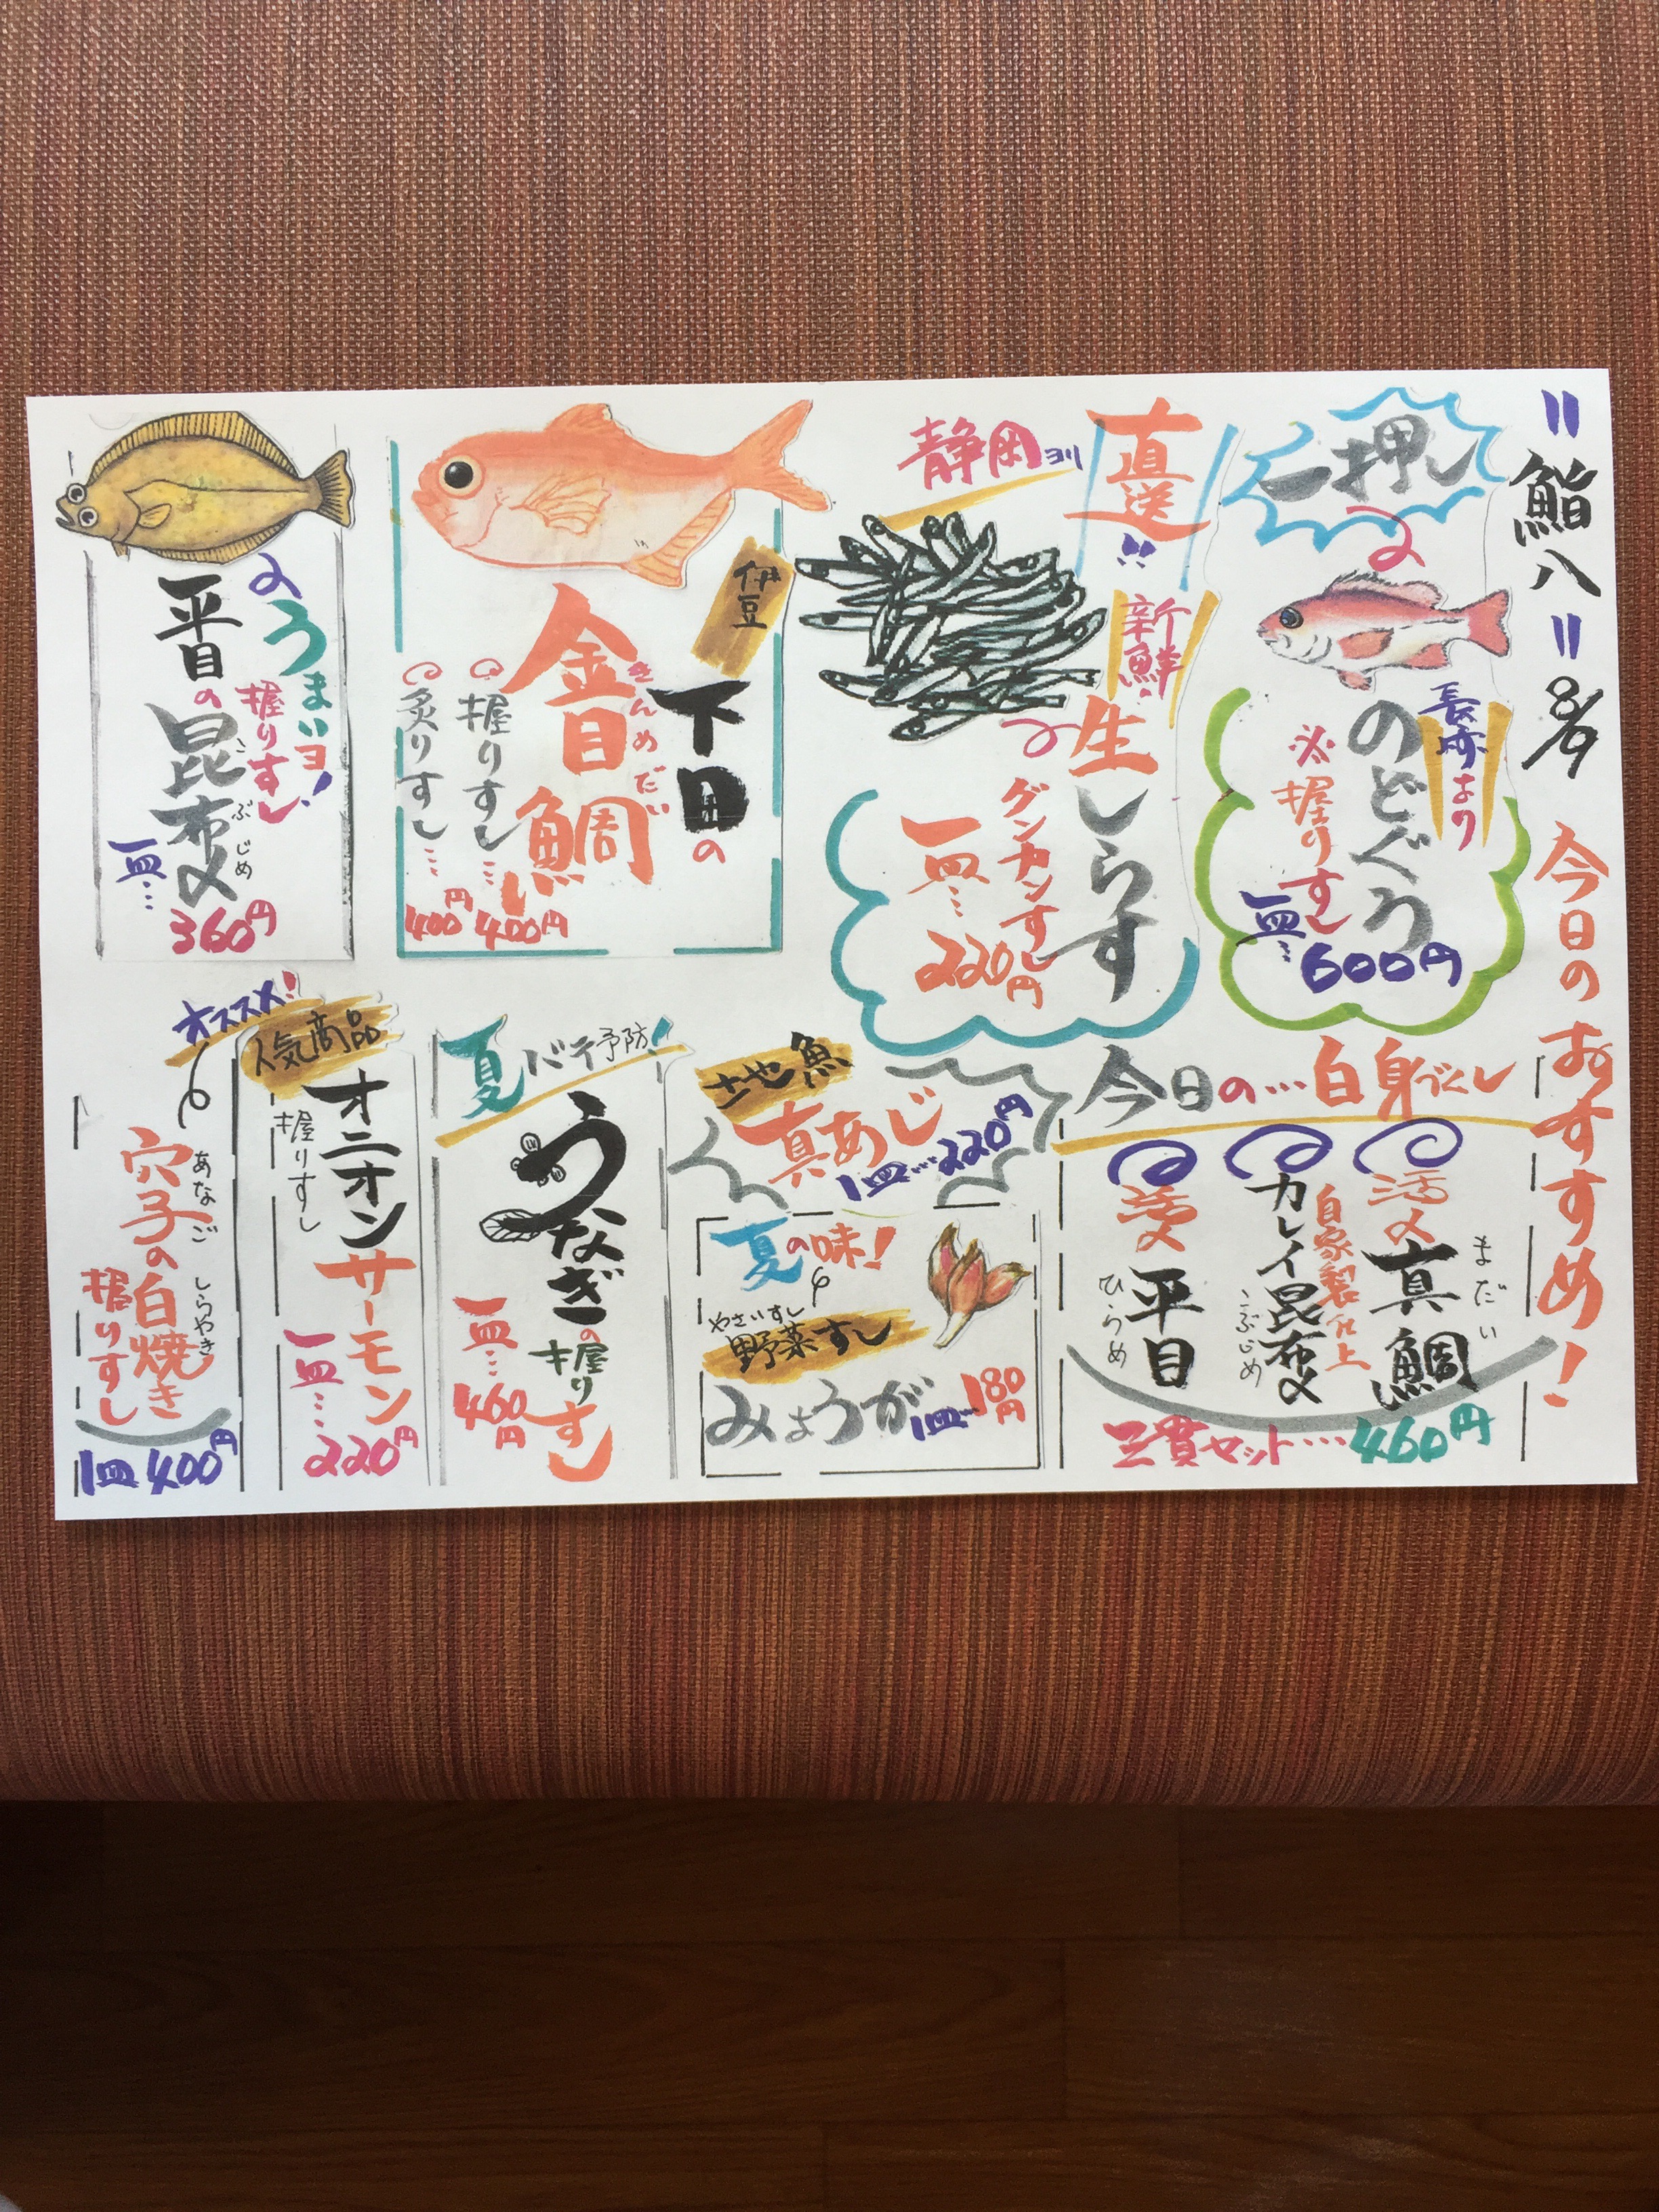 "鮨八" 8/9
今日のおすすめ!
一押し
長崎より
のどぐろ
※握りすし
一皿…600円
直送!!
静岡ヨリ
新鮮!
生しらす
グンカンすし
一皿…220円
伊豆
下田の
金目鯛
きんめだい
握りすし…400円
炙りすし…400円
うまいヨ!
握りすし
平目の昆布〆
こぶじめ
一皿…360円
今日の…白身づくし
活〆真鯛
まだい
自家製仕上
カレイ昆布〆
こぶじめ
活〆平目
ひらめ
三貫セット…460円
土地魚
真あじ
1皿…220円
夏の味!
やさいすし
野菜すし
みょうが
1皿…180円
夏バテ予防!
うなぎの握りすし
一皿…460円
人気商品
オニオンサーモン
握りすし
一皿…220円
オススメ!
穴子の白焼き
あなご しらやき
握りすし
1皿400円